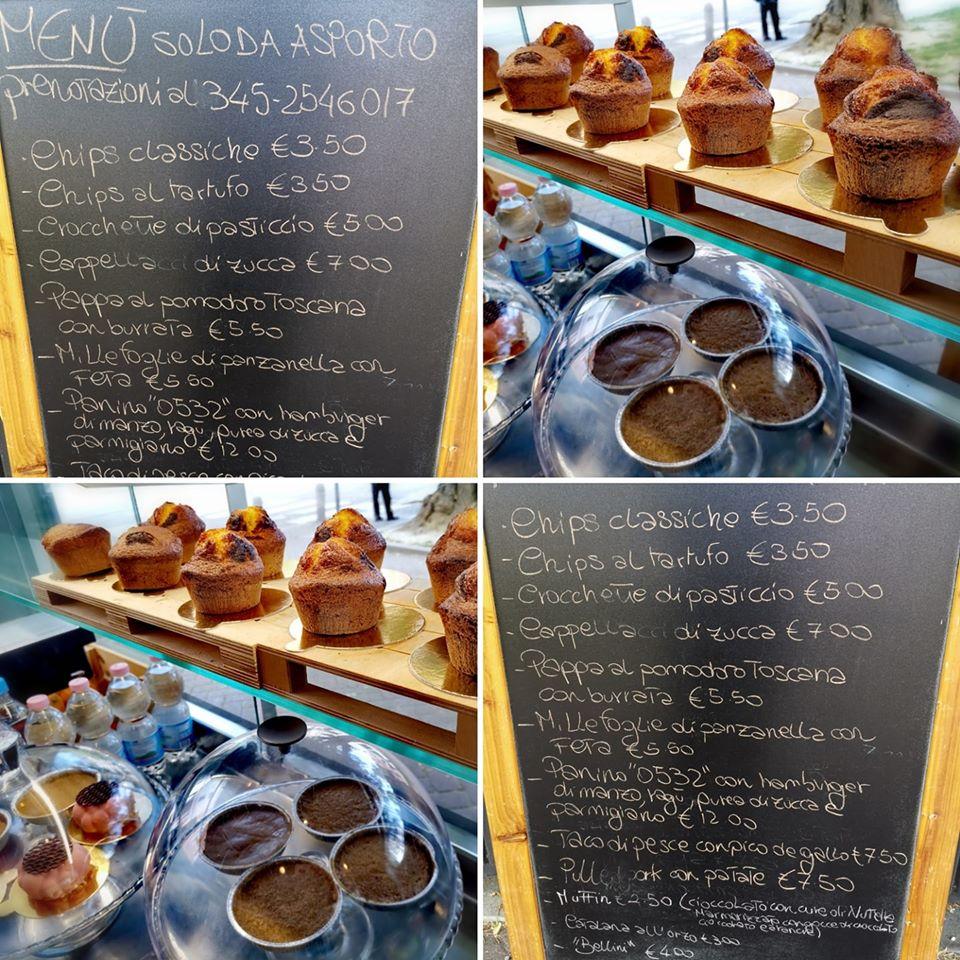 MENÙ SOLO DA ASPORTO
prenotazioni al 345-2546017
- Chips classiche €3.50
- Chips al tartufo €3.50
- Crocchette di pasticcio €5.00
- Cappellacci di zucca €7.00
- Pappa al pomodoro Toscana
con burrata €5.50
- Millefoglie di panzanella con
Feta €5.50
- Panino "0532" con hamburger
di manzo, ragù, purea di zucca e
parmigiano €12.00
- Taco di pesce
- Chips classiche €3.50
- Chips al tartufo €3.50
- Crocchette di pasticcio €5.00
- Cappellacci di zucca €7.00
- Pappa al pomodoro Toscana
con burrata €5.50
- Millefoglie di panzanella con
Feta €5.50
- Panino "0532" con hamburger
di manzo, ragù, purea di zucca e
parmigiano €12.00
- Taco di pesce con pico de gallo €7.50
- Pulled pork con patate €7.50
- Muffin €2.50 (cioccolato con cuore di Nutella
Marmorizzato con gocce di cioccolato
cioccolato e arancia)
- Catalana all'orzo €3.00
- "Bellini" €4.00